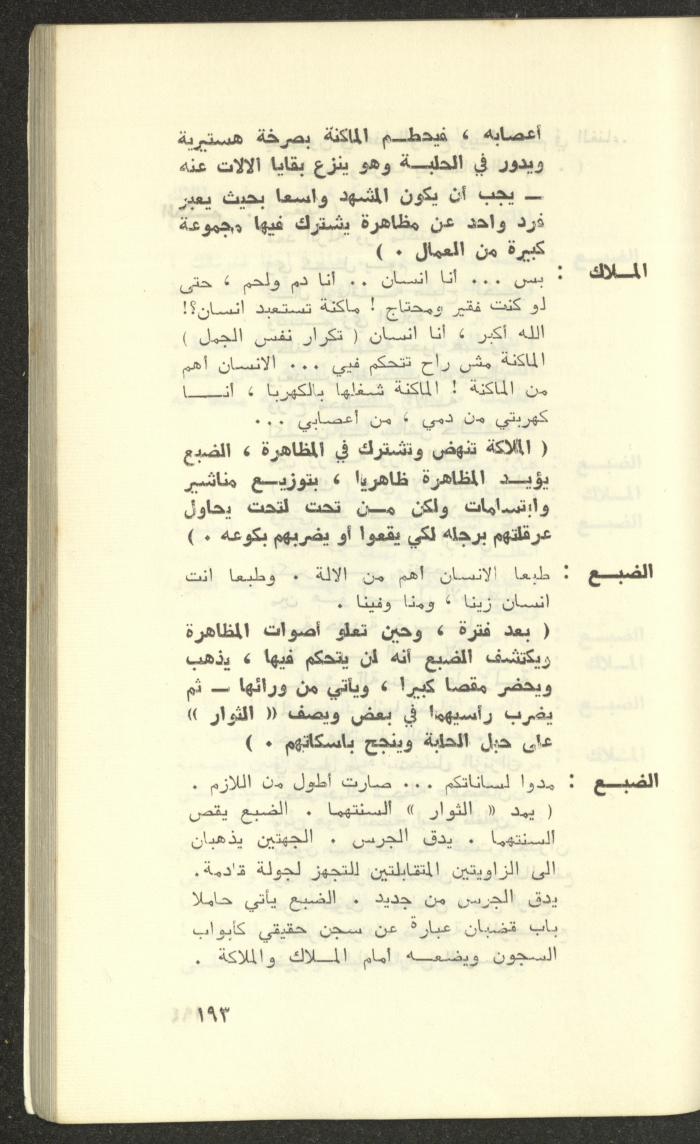 أعصابه ، فيحطـم الماكنة بصرخة هستيرية
ويدور في الحلبـة وهو ينزع بقايا الالات عنه
ــ يجب أن يكون المشهد واسعا بحيث يعبر
فرد واحد عن مظاهرة يشترك فيها مجموعة
كبيرة من العمال . )
المـلاك : بس ... أنا انسان .. أنا دم ولحم ، حتى
لو كنت فقير ومحتاج ! ماكنة تستعبد انسان؟!
الله أكبر ، أنا انسان ( تكرار نفس الجمل )
الماكنة مش راح تتحكم فيي ... الانسان أهم
من الماكنة ! الماكنة شغلها بالكهربا ، أنـــا
كهربتي من دمي ، من أعصابي ...
( الملاكة تنهض وتشترك في المظاهرة ، الضبع
يؤيـد المظاهرة ظاهريا ، بتوزيـع مناشير
وابتسامات ولكن مـن تحت لتحت يحاول
عرقلتهم برجله لكي يقعوا أو يضربهم بكوعه . )
الضبـع : طبعا الانسان أهم من الالة . وطبعا انت
انسان زينا ، ومنا وفينا .
( بعد فترة ، وحين تعلو أصوات المظاهرة
ويكتشف الضبع أنه لن يتحكم فيها ، يذهب
ويحضر مقصا كبيرا ، ويأتي من ورائها ــ ثم
يضرب رأسيهما في بعض ويصف « الثوار »
على حبل الحلبة وينجح باسكاتهم . )
الضبـع : مدوا لساناتكم ... صارت أطول من اللازم .
( يمد « الثوار » السنتهما . الضبع يقص
السنتهما . يدق الجرس . الجهتين يذهبان
الى الزاويتين المتقابلتين للتجهز لجولة قادمة.
يدق الجرس من جديد . الضبع يأتي حاملا
باب قضبان عبارة عن سجن حقيقي كأبواب
السجون ويضعـه أمام المـلاك والملاكة .
١٩٣